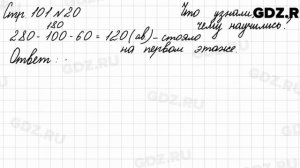 Стр 101 №20
Что узнали.
Чему научились?
GDZ.RU
180
280 - 100 - 60 = 120 (ав) - стояло
на первом этаже.
Ответ: .
GDZ.RU